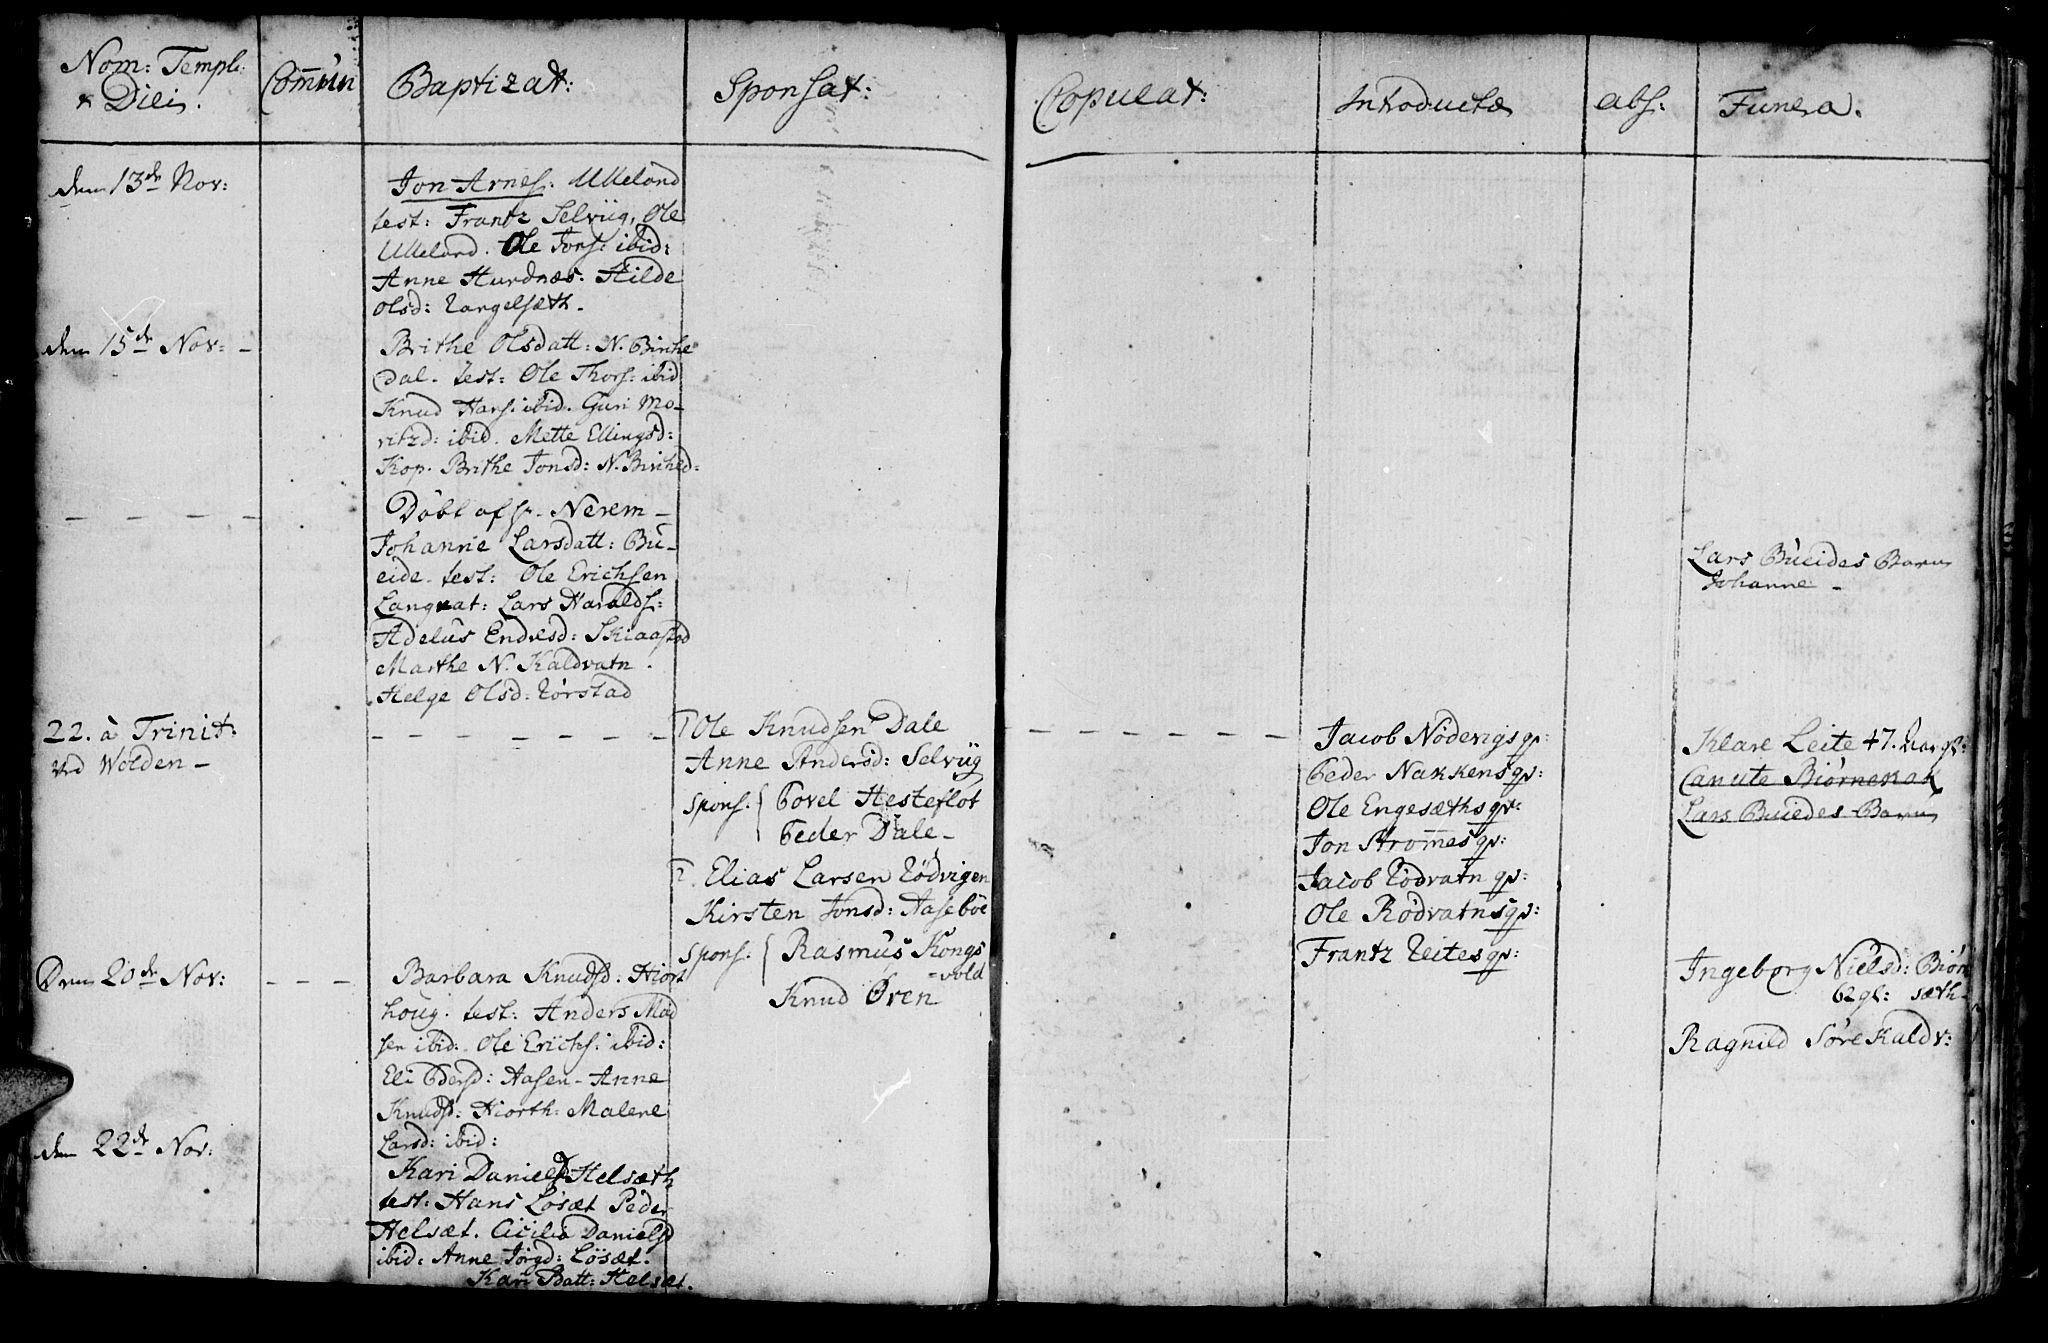 Nom: Templ:
& Diei.
Comun
Baptizat:
Sponsat:
Copulat:
Introductæ
abs:
Funera.
den 13de Nov:
Jon Arnes: Ulleland
test: Frantz Selviig, Ole
Ulleland. Ole Jons: ibid:
Anne Hurdnæs. Hilde
Olsd: Targelsæth.
den 15de Nov: -
Brithe Olsdatt: N. Birche
dal. test: Ole Thors: ibid
Knud Hans: ibid. Guri Mo-
ritzd: ibid. Mette Ellingsd:
Kop. Brithe Jonsd: N. Birched:
Döbt af hr. Nerem -
Johanne Larsdatt: Bu-
eide. test: Ole Erichsen
Langvat: Lars Haralds:
Adelus Endresd: Skiaastad
Marthe N. Kaldvatn.
Helge Olsd: Törstad
Lars Bueides Barn
Johanne -
22. à Trinit:
ved Wolden -
1 Ole Knudsen Dale
Anne Andersd: Selviig
spons: { Povel Hesteflot
Peder Dale -
2. Elias Larsen Rödvigen
Kirsten Jonsd: Aaseböe
spons: { Rasmus Kongs
-vold
Knud Ören
Jacob Nödevigs qv:
Peder Nakkens qv:
Ole Engesæths qv:
Jon Stromes qv:
Jacob Rödvatn qv:
Ole Rödvatns qv:
Frantz Teites qv:
Klare Leite 47. Aar gl:
Canute Biörnenak
Lars Bueides Barn
Den 20de Nov:
Barbara Knudsd: Hiort
houg. test: Anders Mad
sen ibid: Ole Erichs: ibid:
Eli Pdersd: Aasen - Anne
Knudsd: Hiorth: Malene
Larsd: ibid:
Ingeborg Nielsd: Biörn
62 gl: sæth -
Ragnild Söre Kaldv:
den 22de Nov:
Kari Danielsd: Helsæth
test: Hans Lösæt Peder
Helsæt. Cicilia Danielsd
ibid: Anne Jörgd: Lösæt.
Kari Batt: Helsæt.